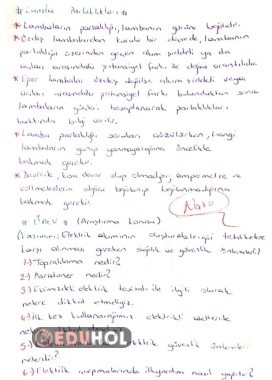 # Lamba Parlaklıkları #
* Lambaların parlaklığı, lambanın gücüne bağlıdır.
* Özdeş lambalardan kurulu bir devrede, lambanın
parlaklığı üzerinden geçen akım şiddeti ya da
uçları arasındaki potansiyel farkı ile doğru orantılıdır.
* Eğer lambalar özdeş değilse akım şiddeti veya
uçları arasındaki potansiyel farkı bulunduktan sonra
lambaların güçleri hesaplanarak parlaklıkları
hakkında bilgi verilir.
* Lamba parlaklığı soruları çözülürken, hangi
lambaların yanıp yanmayacağına öncelikle
bakmak gerekir.
* Sonra, kısa devre olup olmadığı, ampermetre ve
voltmetrelerin doğru bağlanıp bağlanmadığına
bakmak gerekir.
Notu
# ÖDEV # (Araştırma konusu)
Elektrik akımının oluşturabileceği tehlikelere
karşı alınması gereken sağlık ve güvenlik önlemleri
1-) Topraklama nedir?
2-) Paratoner nedir?
3-) Evimizdeki elektrik tesisatı ile ilgili olarak
nelere dikkat etmeliyiz.
4-) İlk kez kullanacağımız elektrikli aletlerde
EDUHOL
5-) elektrik güvenlik önlemleri
nelerdir?
6-) Elektrik çarpmalarında ilkyardım nasıl yapılır?